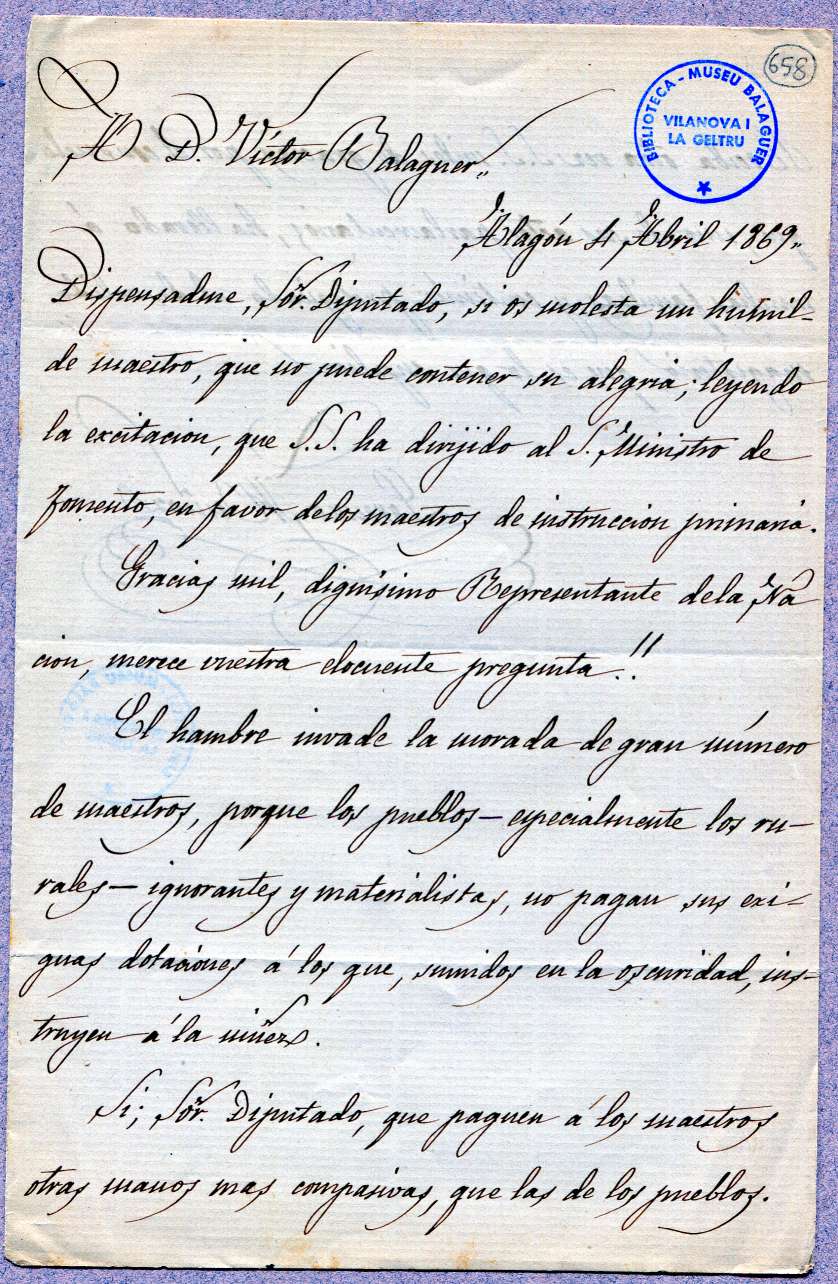 658
BIBLIOTECA - MUSEU BALAGUER
VILANOVA I
LA GELTRU
A D. Víctor Balaguer„
Alagón 4 Abril 1869„
Dispensadme, Sor. Diputado, si os molesta un humil-
de maestro, que no puede contener su alegria; leyendo
la excitacion, que S.S. ha dirijido al S. Ministro de
Fomento, en favor delos maestros de instruccion primaria.
Gracias mil, dignisimo Representante dela Na
cion, merece vuestra elocuente pregunta.!!
El hambre invade la morada de gran número
de maestros, porque los pueblos – especialmente los ru-
rales – ignorantes y materialistas, no pagan sus exi-
guas dotaciones á los que, sumidos en la oscuridad, ins-
truyen á la niñez.
Si; Sor. Diputado, que paguen á los maestros
otras manos mas compasivas, que las de los pueblos.